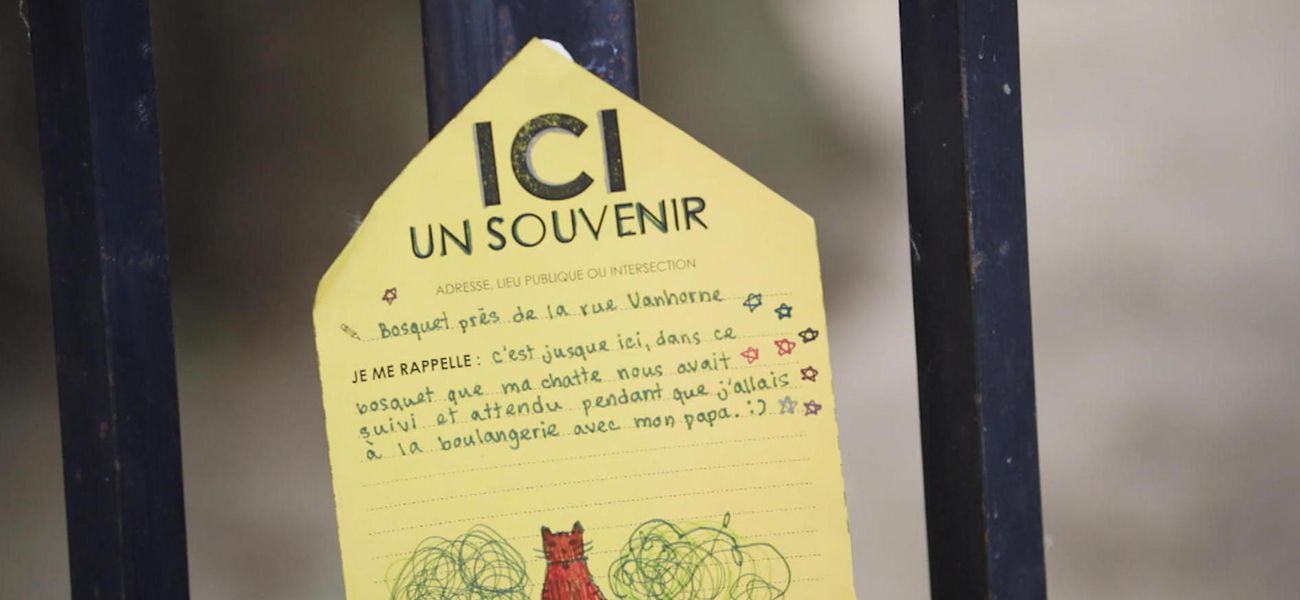 ICI
UN SOUVENIR
ADRESSE, LIEU PUBLIQUE OU INTERSECTION
Bosquet près de la rue Vanhorne
JE ME RAPPELLE : c'est jusque ici, dans ce
bosquet que ma chatte nous avait
suivi et attendu pendant que j'allais
à la boulangerie avec mon papa. :)